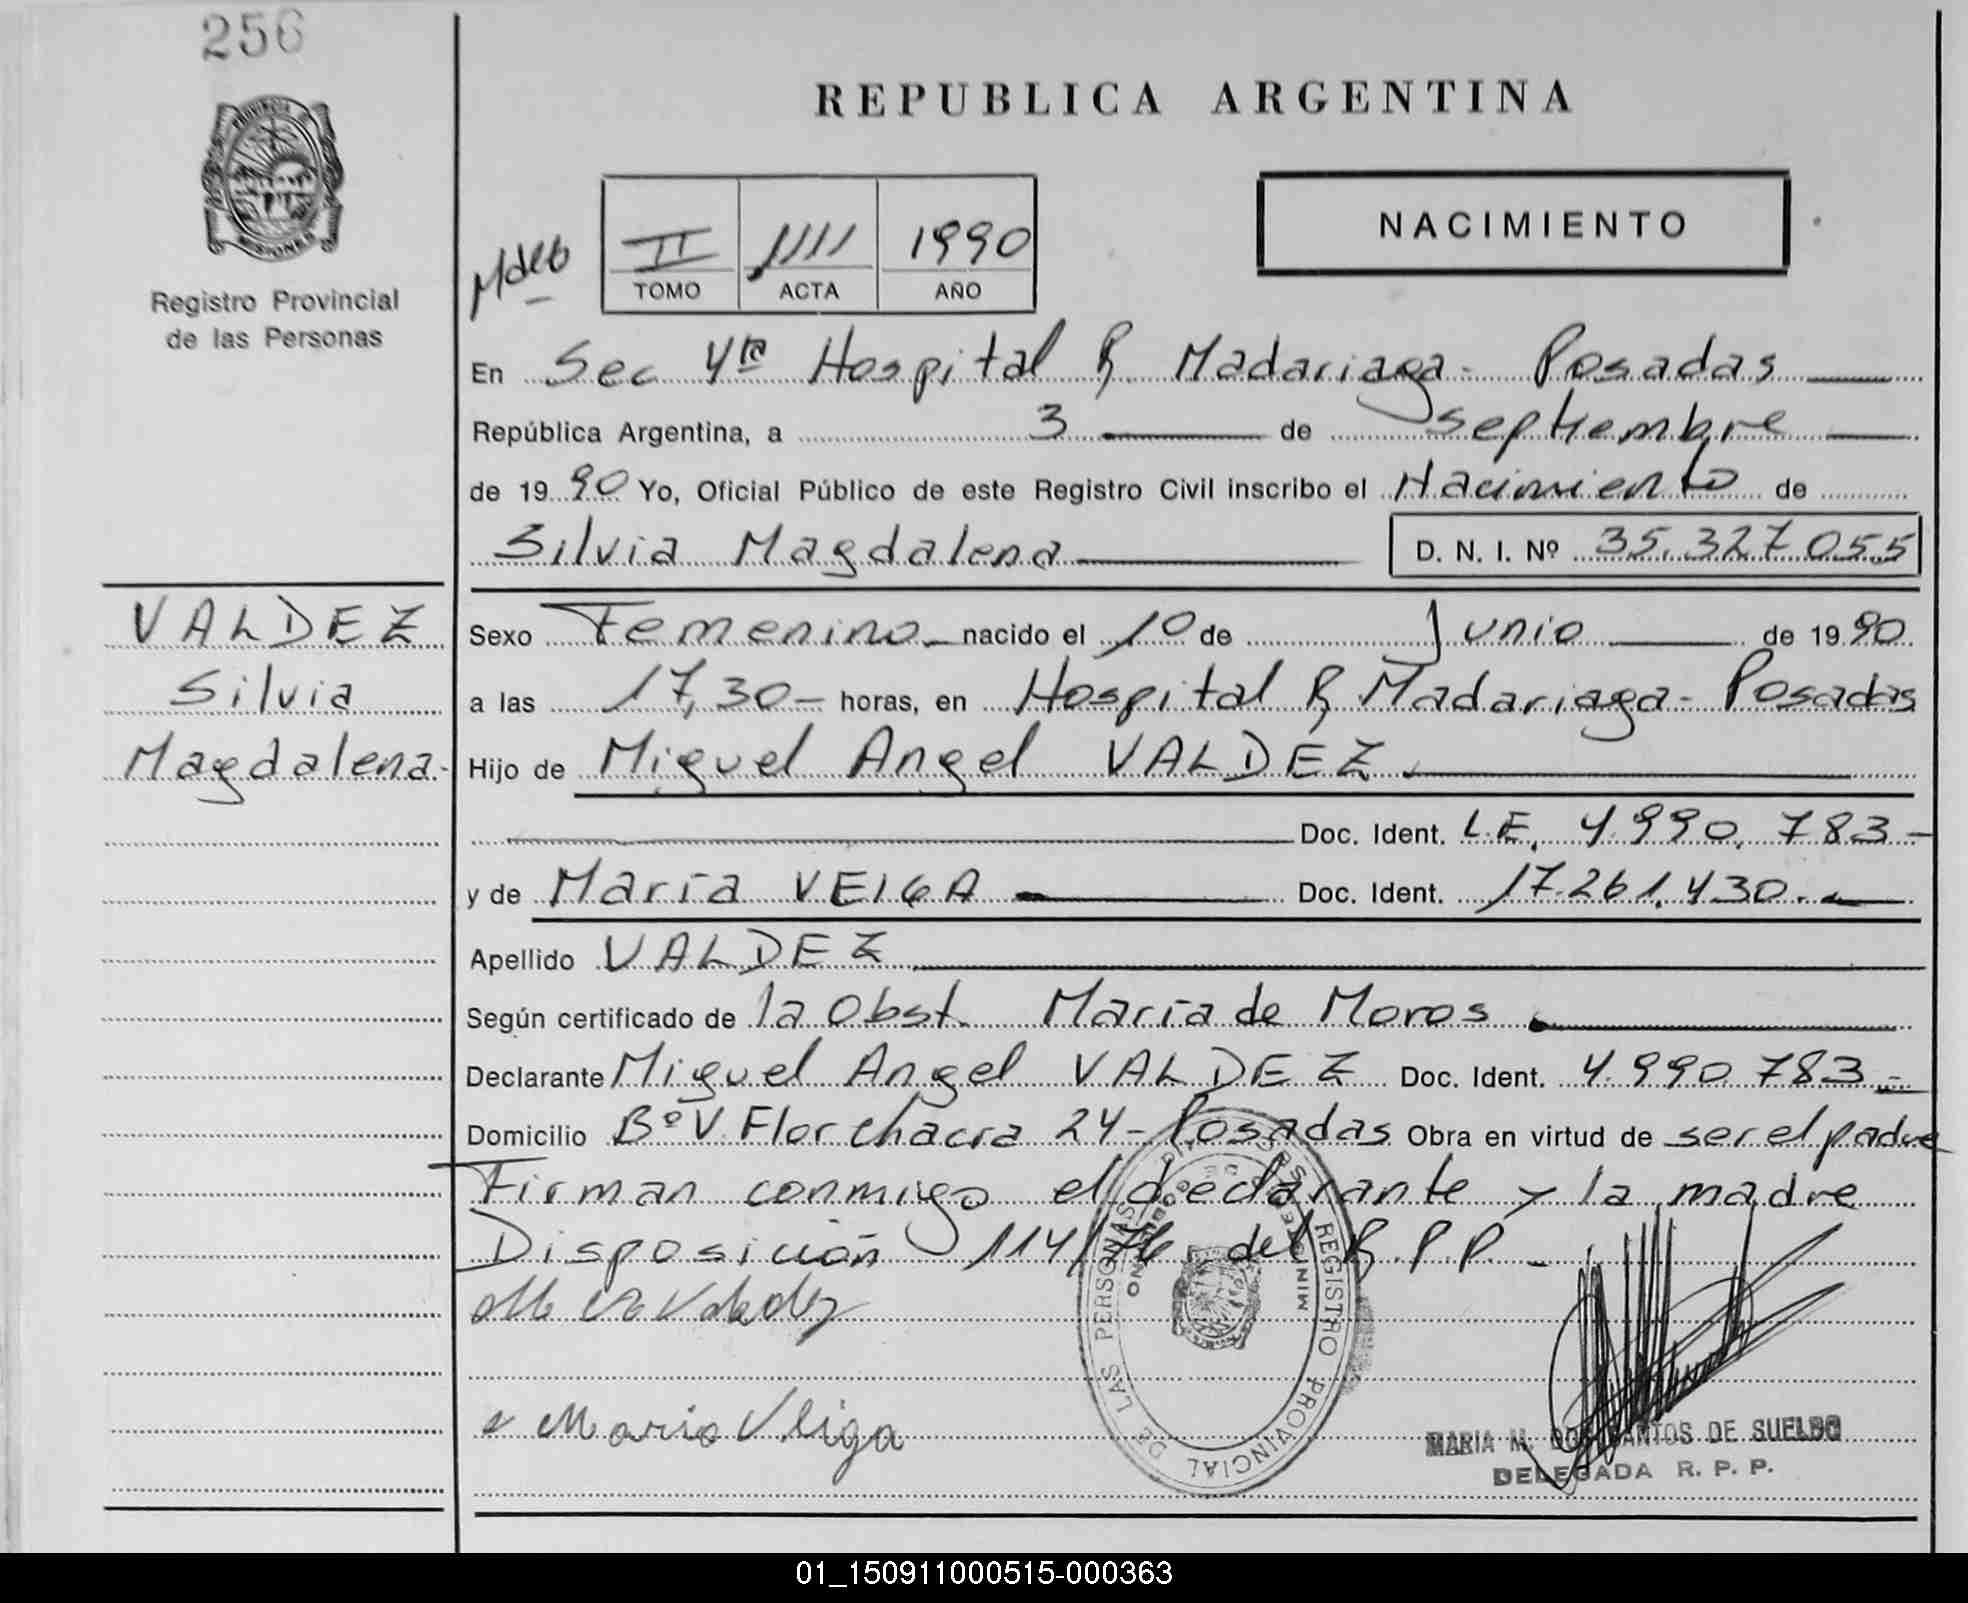 256
REPUBLICA ARGENTINA
PROVINCIA DE
MISIONES
Registro Provincial
de las Personas
NACIMIENTO
II 1111 1990
TOMO ACTA AÑO
En Sec 4ta Hospital R Madariaga - Posadas
República Argentina, a 3 de septiembre
de 19 90 Yo, Oficial Público de este Registro Civil inscribo el Nacimiento de
Silvia Magdalena D. N. I. Nº 35.327 055
VALDEZ
Silvia
Magdalena.
Sexo Femenino nacido el 10 de Junio de 19 90
a las 17,30 - horas, en Hospital R Madariaga - Posadas
Hijo de Miguel Angel VALDEZ
Doc. Ident. L.E. 4.990.783 -
y de María VEIGA Doc. Ident. 17.261.430. -
Apellido VALDEZ
Según certificado de la Obst. María de Moros
Declarante Miguel Angel VALDEZ Doc. Ident. 4.990 783 -
Domicilio Bº V. Flor chacra 24 - Posadas Obra en virtud de ser el padre
Firman conmigo el declarante y la madre
Disposición 114/76 del R.P.P. -
Maria Veiga
REGISTRO PROVINCIAL DE LAS PERSONAS
MINISTERIO DE GOBIERNO
MARIA M. DOS SANTOS DE SUELDO
DELEGADA R. P. P.
01_150911000515-000363